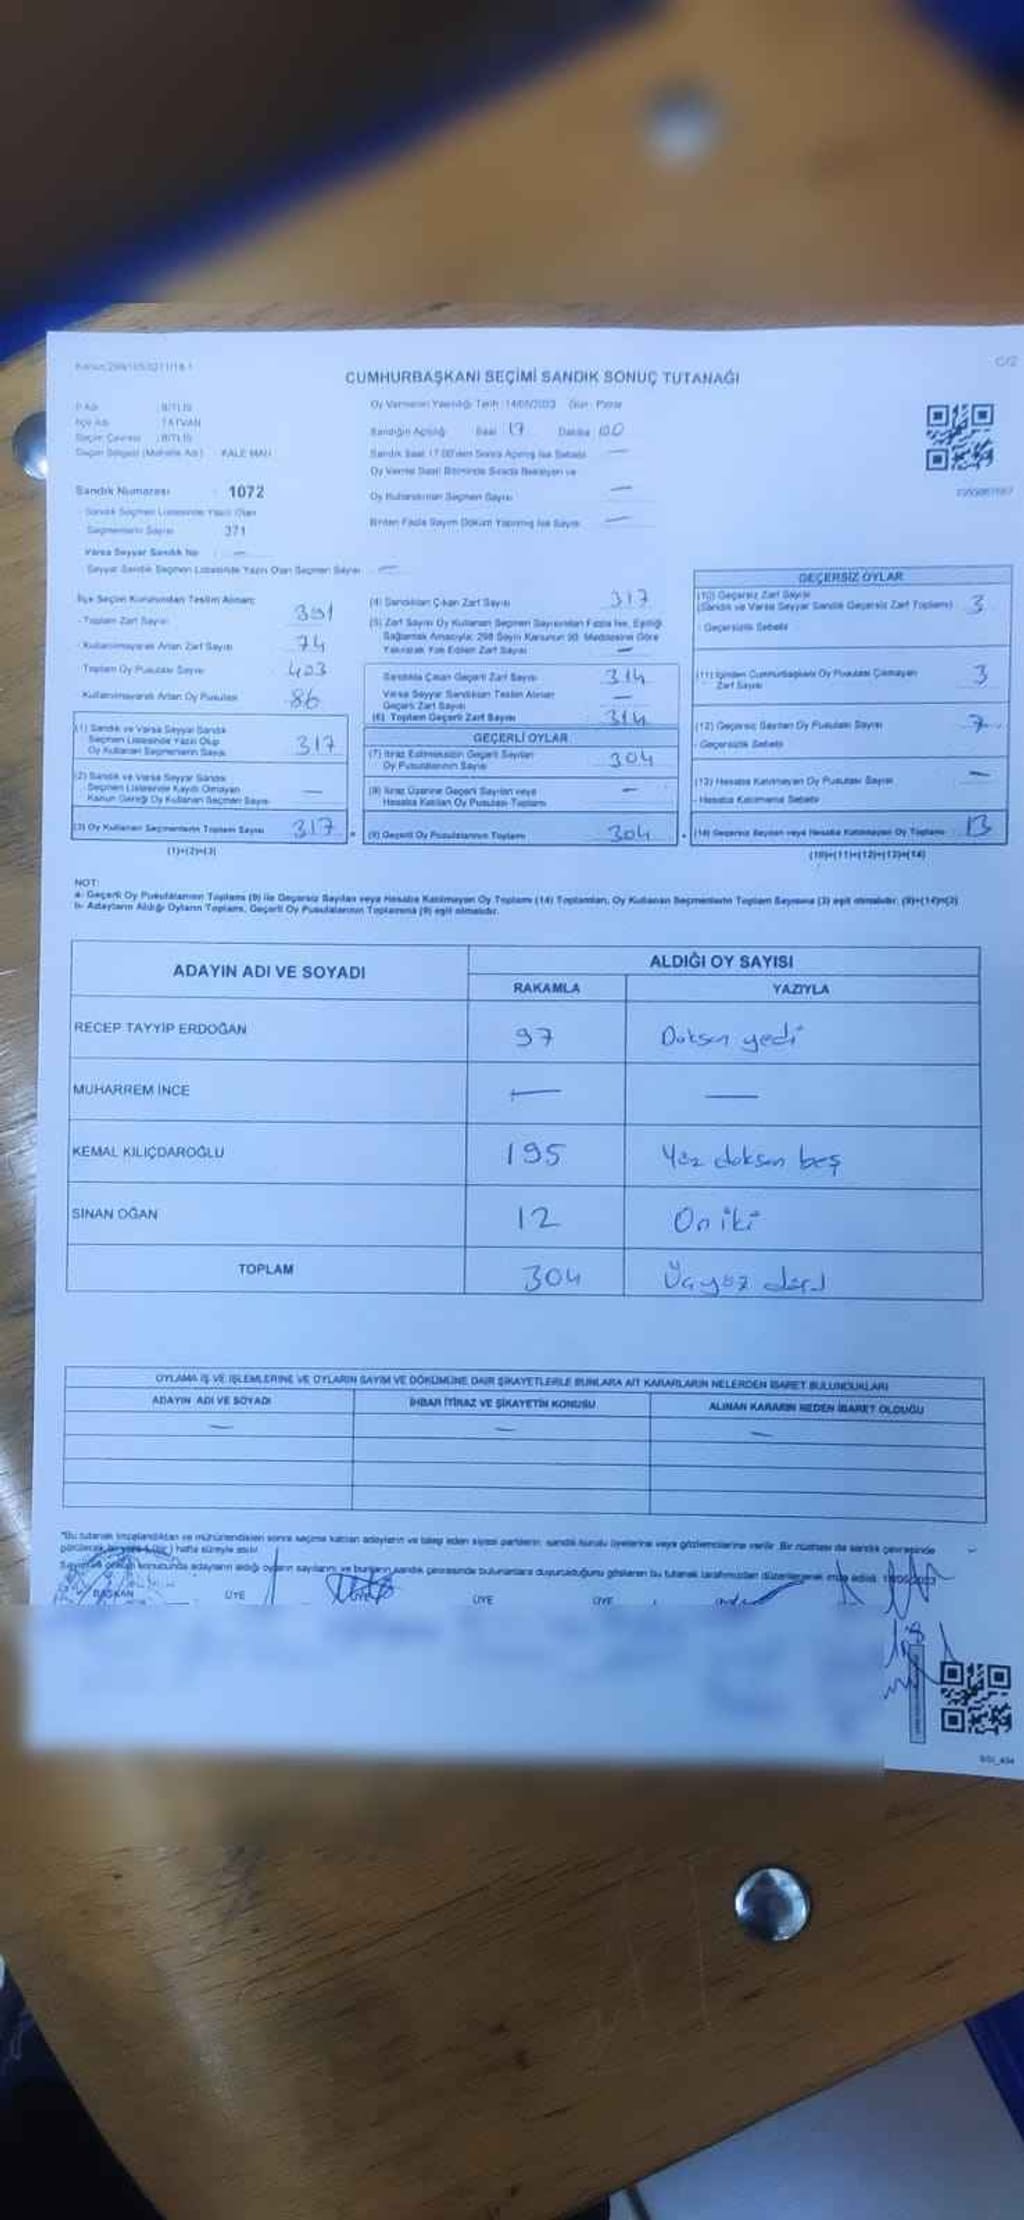 C/2
CUMHURBAŞKANI SEÇİMİ SANDIK SONUÇ TUTANAĞI
İl Adı : BİTLİS
İlçe Adı : TATVAN
Seçim Çevresi : BİTLİS
Seçim Bölgesi (Mahalle Adı) : KALE MAH
Sandık Numarası : 1072
Sandık Seçmen Listesinde Yazılı Olan
Seçmenlerin Sayısı : 371
Varsa Seyyar Sandık No : —
Seyyar Sandık Seçmen Listesinde Yazılı Olan Seçmen Sayısı : —
Oy Vermenin Yapıldığı Tarih : 14/05/2023 Gün : Pazar
Sandığın Açılışı Saat 17 Dakika 00
Sandık Saat 17.00'den Sonra Açılmış İse Sebebi —
Oy Verme Saati Bitiminde Sırada Bekleyen ve
Oy Kullandırılan Seçmen Sayısı —
Birden Fazla Sayım Döküm Yapılmış İse Sayısı —
İlçe Seçim Kurulundan Teslim Alınan:
- Toplam Zarf Sayısı
- Kullanılmayarak Artan Zarf Sayısı 74
- Toplam Oy Pusulası Sayısı 403
- Kullanılmayarak Artan Oy Pusulası 86
(1) Sandık ve Varsa Seyyar Sandık
Seçmen Listesinde Yazılı Olup
Oy Kullanan Seçmenlerin Sayısı 317
(2) Sandık ve Varsa Seyyar Sandık
Seçmen Listesinde Kayıtlı Olmayan
Kanun Gereği Oy Kullanan Seçmen Sayısı —
(3) Oy Kullanan Seçmenlerin Toplam Sayısı 317
(1)+(2)=(3)
(4) Sandıktan Çıkan Zarf Sayısı 317
(5) Zarf Sayısı Oy Kullanan Seçmen Sayısından Fazla İse, Eşitliği
Sağlamak Amacıyla; 298 Sayılı Kanunun 98. Maddesine Göre
Yakılarak Yok Edilen Zarf Sayısı —
Sandıkta Çıkan Geçerli Zarf Sayısı 314
Varsa Seyyar Sandıktan Teslim Alınan
Geçerli Zarf Sayısı —
(6) Toplam Geçerli Zarf Sayısı 314
GEÇERLİ OYLAR
(7) İtiraz Edilmeksizin Geçerli Sayılan
Oy Pusulalarının Sayısı 304
(8) İtiraz Üzerine Geçerli Sayılan veya
Hesaba Katılan Oy Pusulası Toplamı —
(9) Geçerli Oy Pusulalarının Toplamı 304
GEÇERSİZ OYLAR
(10) Geçersiz Zarf Sayısı
(Sandık ve Varsa Seyyar Sandık Geçersiz Zarf Toplamı) 3
- Geçersizlik Sebebi
(11) İçinden Cumhurbaşkanı Oy Pusulası Çıkmayan
Zarf Sayısı 3
(12) Geçersiz Sayılan Oy Pusulası Sayısı 7
- Geçersizlik Sebebi
(13) Hesaba Katılmayan Oy Pusulası Sayısı —
- Hesaba Katılmama Sebebi
(14) Geçersiz Sayılan veya Hesaba Katılmayan Oy Toplamı 13
(10)+(11)+(12)+(13)=(14)
NOT:
a- Geçerli Oy Pusulalarının Toplamı (9) ile Geçersiz Sayılan veya Hesaba Katılmayan Oy Toplamı (14) Toplamları, Oy Kullanan Seçmenlerin Toplam Sayısına (3) eşit olmalıdır. (9)+(14)=(3)
b- Adayların Aldığı Oyların Toplamı, Geçerli Oy Pusulalarının Toplamına (9) eşit olmalıdır.
ADAYIN ADI VE SOYADI
ALDIĞI OY SAYISI
RAKAMLA YAZIYLA
RECEP TAYYİP ERDOĞAN 97 Doksan yedi
MUHARREM İNCE — —
KEMAL KILIÇDAROĞLU 195 Yüz doksan beş
SİNAN OĞAN 12 On iki
TOPLAM 304 Üçyüz dört
OYLAMA İŞ VE İŞLEMLERİNE VE OYLARIN SAYIM VE DÖKÜMÜNE DAİR ŞİKAYETLERLE BUNLARA AİT KARARLARIN NELERDEN İBARET BULUNDUKLARI
ADAYIN ADI VE SOYADI İHBAR İTİRAZ VE ŞİKAYETİN KONUSU ALINAN KARARIN NEDEN İBARET OLDUĞU
— — —
*Bu tutanak imzalandıktan ve mühürlendikten sonra seçime katılan adayların ve talep eden siyasi partilerin sandık kurulu üyelerine veya gözlemcilerine verilir. Bir nüshası da sandık çevresinde
hafta süreyle asılır.
sonucunda adayların aldığı oyların sayılarını ve bunların sandık çevresinde bulunanlara duyurulduğunu gösteren bu tutanak tarafımızdan düzenlenerek imza edildi.
BAŞKAN ÜYE ÜYE ÜYE